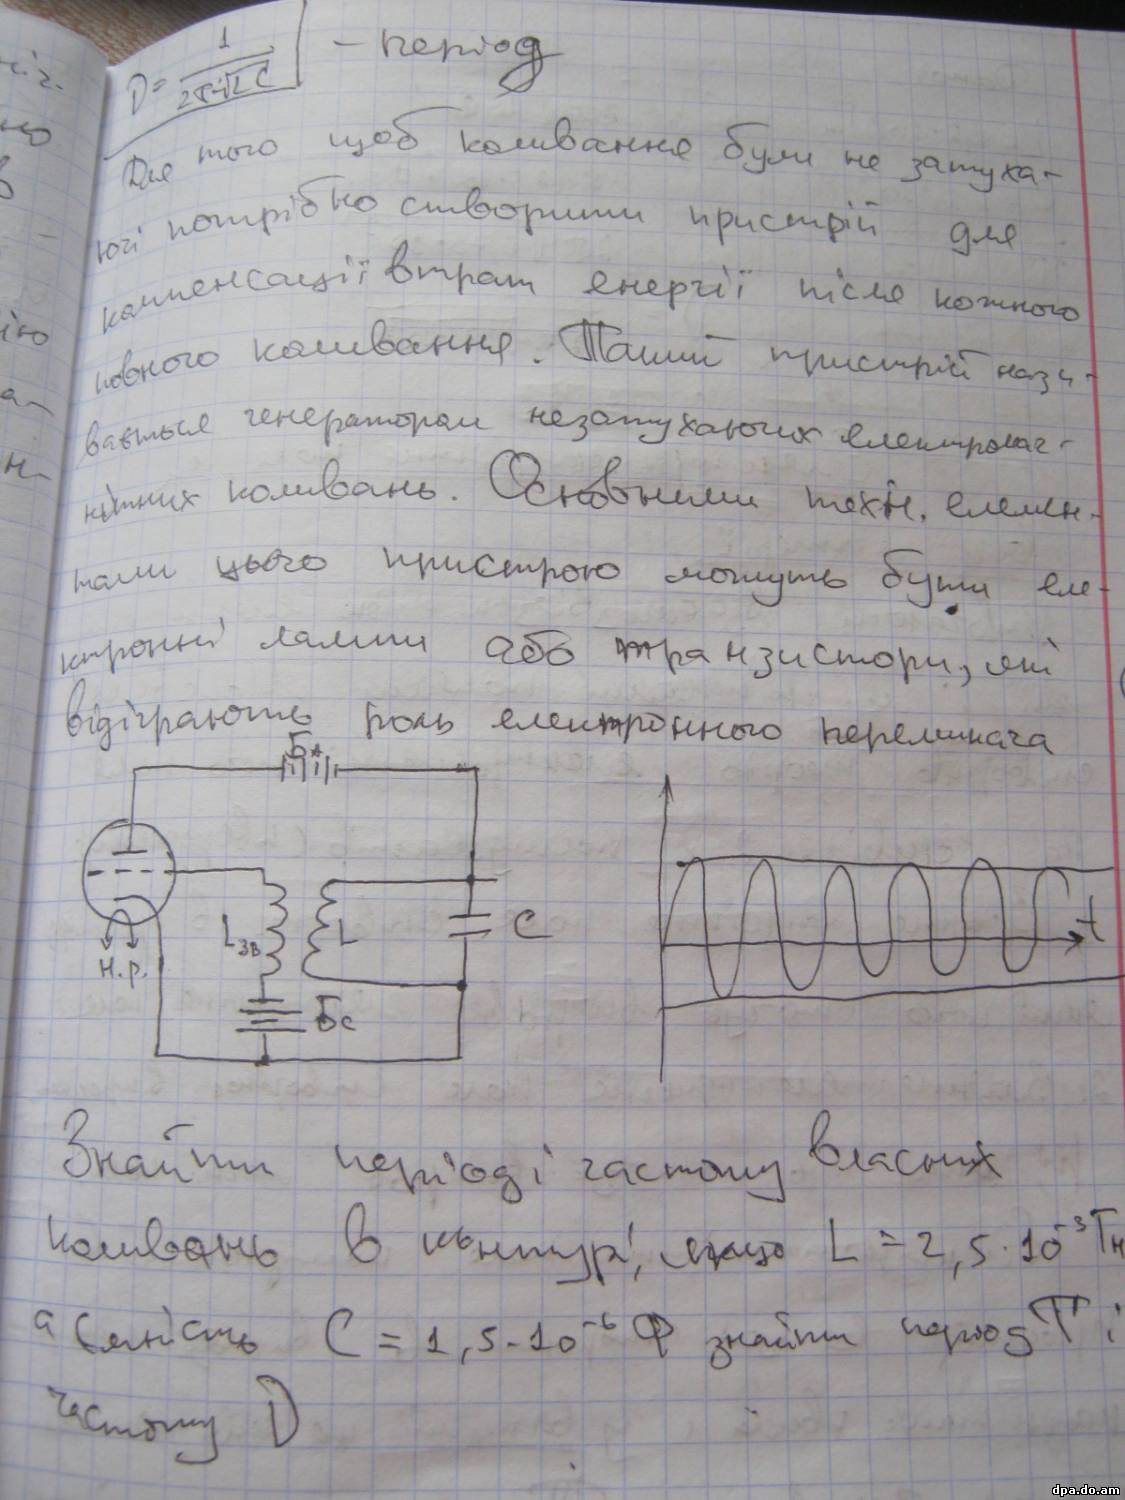 D = 1 / 2π√LC — період
Для того щоб коливання були не затуха-
ючі потрібно створити пристрій для
компенсації втрат енергії після кожного
повного коливання. Такий пристрій нази-
вається генератором незатухаючих електромаг-
нітних коливань. Основними техн. елемен-
тами цього пристрою можуть бути еле-
ктронні лампи або транзистори, які
відіграють роль електронного перемикача
Lзв L C
н.р.
Бс
t
Знайти період і частоту власних
коливань в контурі, якщо L = 2,5·10⁻³ Гн
а ємність C = 1,5·10⁻⁶ Ф знайти період T і
частоту D
dpa.do.am